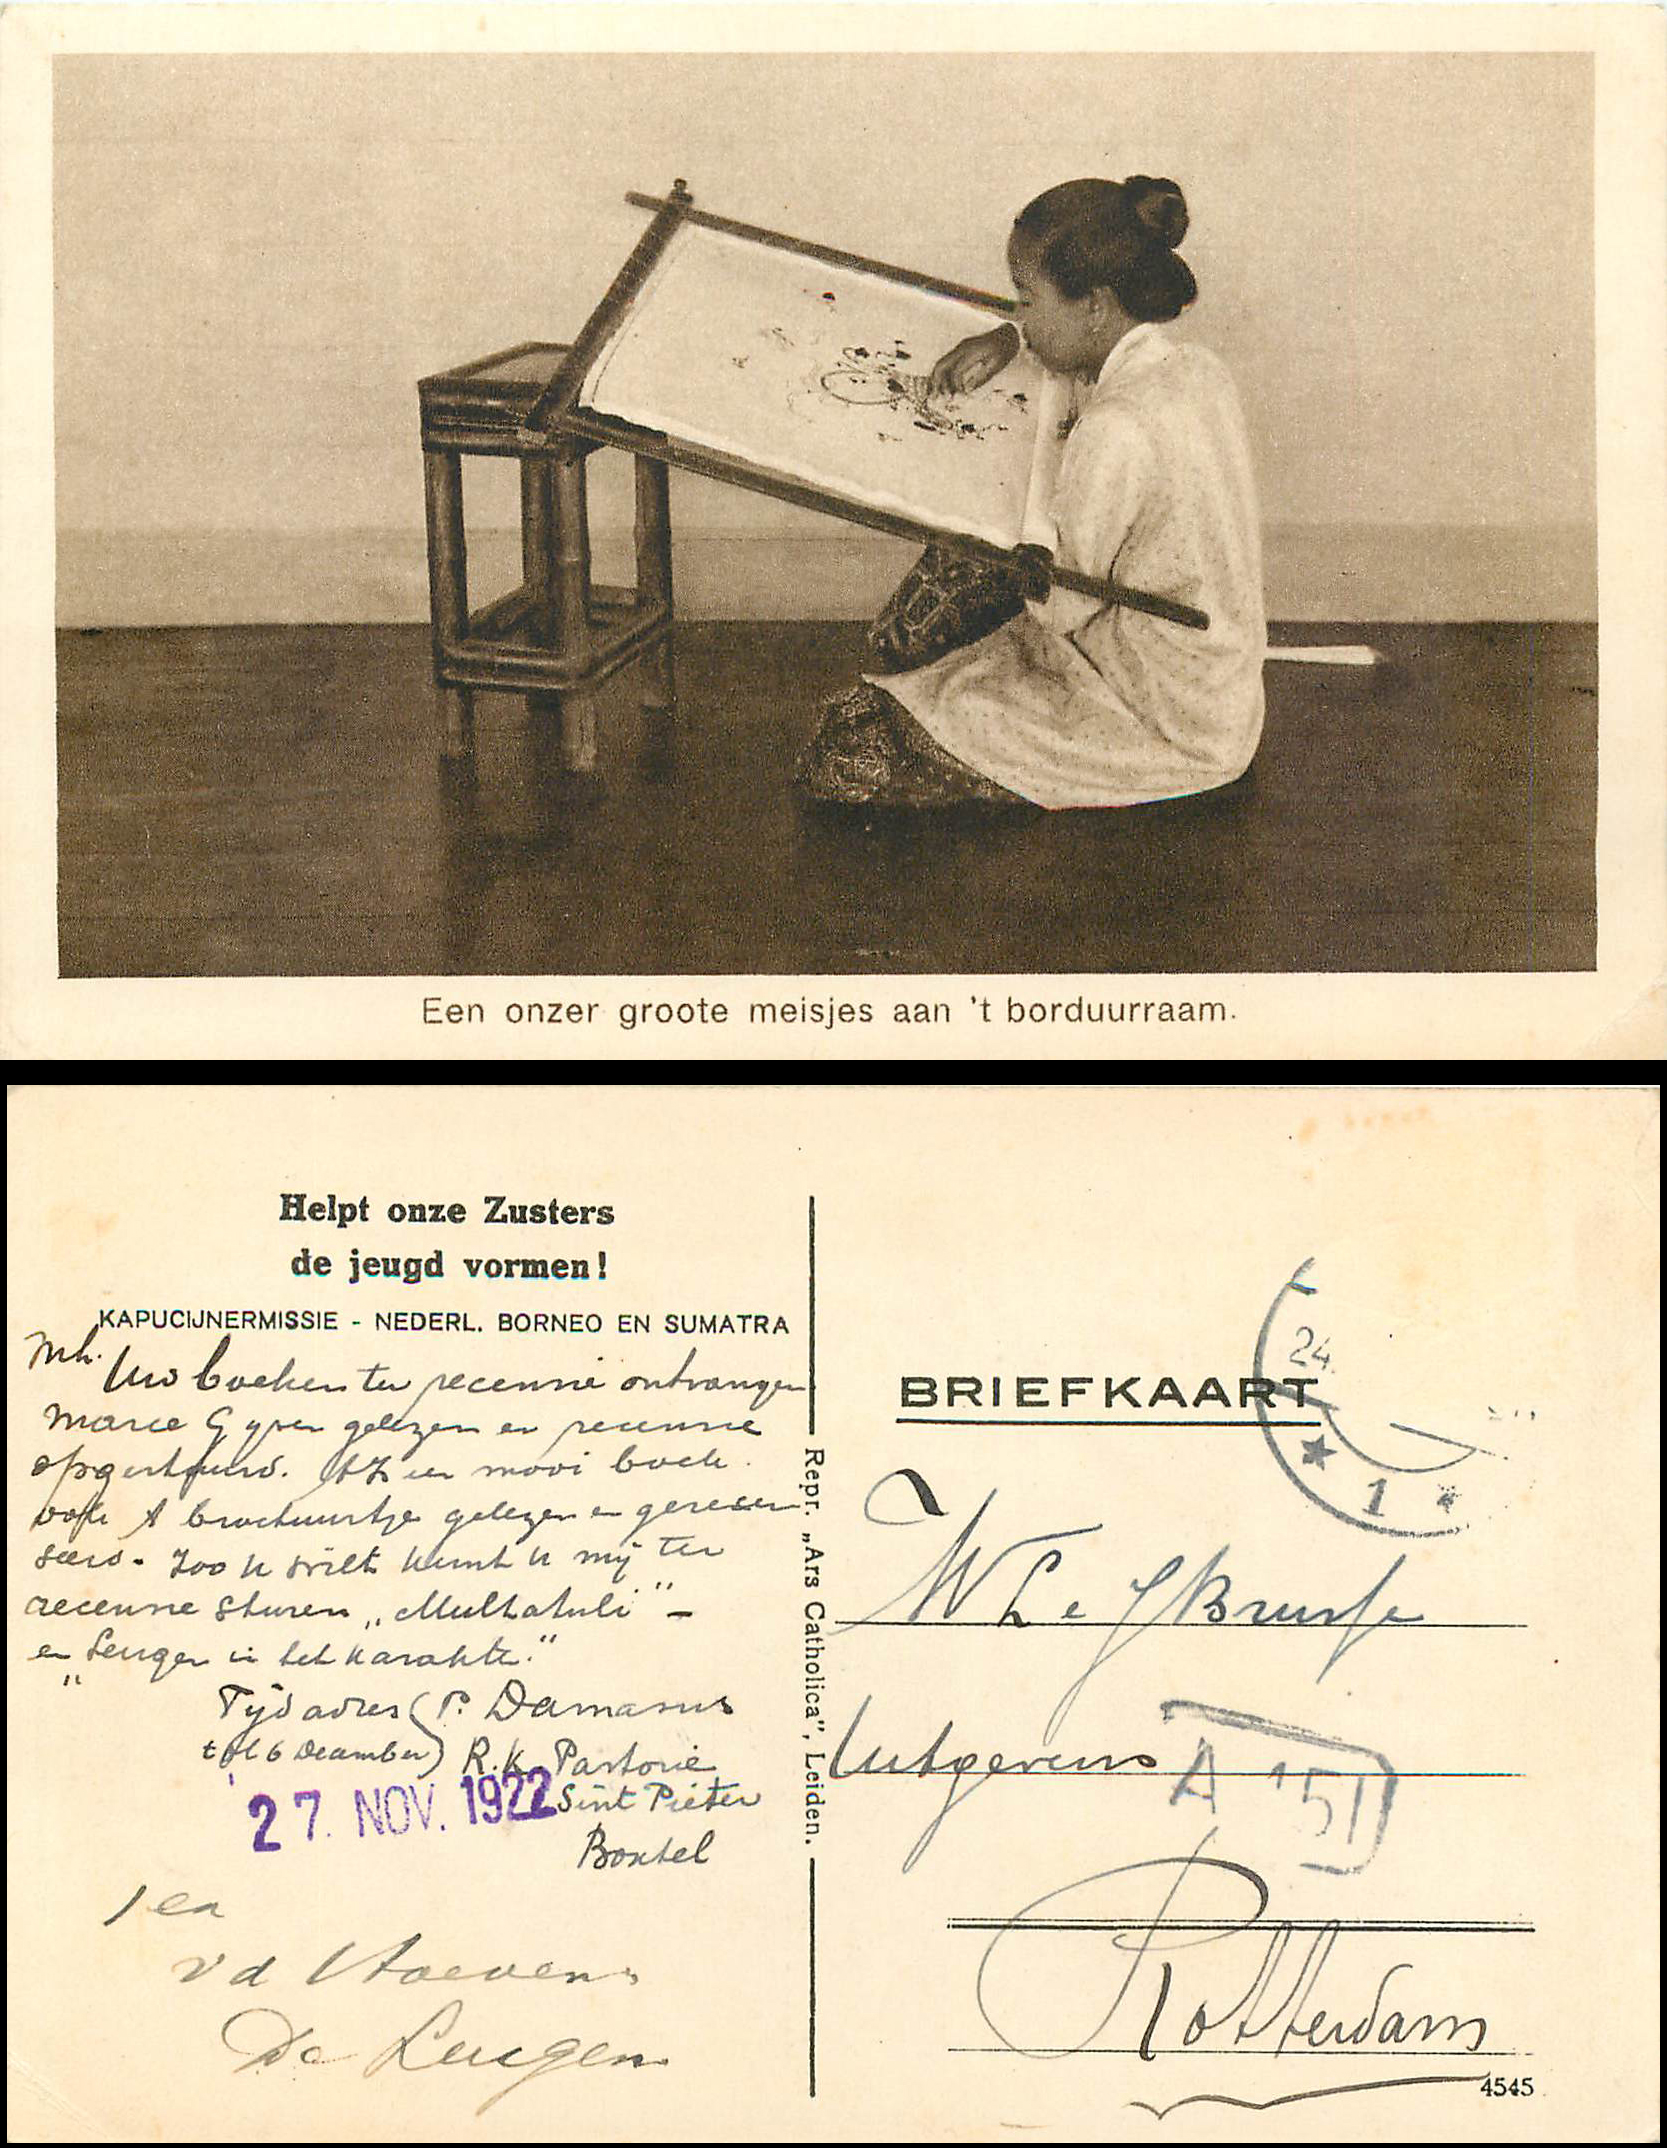 Een onzer groote meisjes aan 't borduurraam.
Helpt onze Zusters
de jeugd vormen!
KAPUCIJNERMISSIE - NEDERL. BORNEO EN SUMATRA
Mh.
Uw boeken ter recensie ontvangen
gelezen en recensie
mooi boek.
ook brochuurtje gelezen en
Zoo U wilt kunt U mij ter
recensie sturen „Multatuli” –
en „Leugen in het karakter.”
Tijd adres (P. Damasus
tot 6 December) R.K. Pastorie
Sint Pieter
Boxtel
27. NOV. 1922
1 ex
v d Hoeven
De Leugen
Repr. „Ars Catholica”, Leiden.
BRIEFKAART
24
1
W L e J Brusse
Uitgevers
A '51
Rotterdam
4545